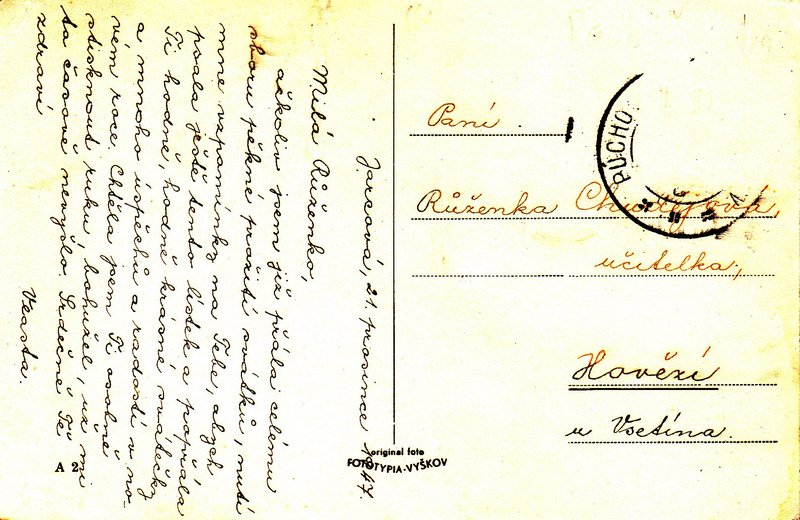 Jarcová, 21. prosince 1947.
Milá Růženko,
ačkoliv jsem již přála celému
sboru pěkné prožití svátků, nutí
mne vzpomínky na Tebe, abych
psala ještě tento lístek a popřála
Ti hodně, hodně krásné svátečky
a mnoho úspěchů a radostí v no-
vém roce. Chtěla jsem Ti osobně
stisknout ruku, bohužel, už mi
to časově nevyšlo. Srdečně Tě
zdraví
Vlasta.
A 2
original foto
FOTOTYPIA-VYŠKOV
PÚCHO
Paní
Růženka
učitelka,
Hovězí
u Vsetína.